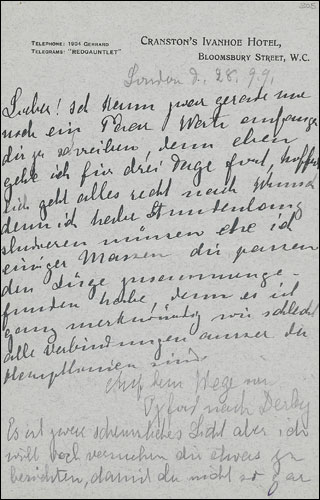 3008
TELEPHONE: 1934 GERRARD
TELEGRAMS: "REDGAUNTLET"
CRANSTON'S IVANHOE HOTEL,
BLOOMSBURY STREET, W.C.
London d. 28. 9.
Lieber! Ich kann zwar gerade nur
noch ein Paar Worte anfangen
dir zu schreiben, denn eben
gehe ich für drei Tage fort, hoffent
lich geht alles recht nach Wunsch
denn ich habe Stundenlang
studieren müssen ehe ich
einiger Massen die passen
den Züge zusammenge-
funden habe, denn es ist
ganz merkwürdig wie schlecht
alle Verbindungen ausser den
sind.
Auf dem Wege von
Oxford nach Derby
Es ist zwar scheussliches Licht aber ich
will doch versuchen dir etwas zu
berichten, damit du nicht so gar